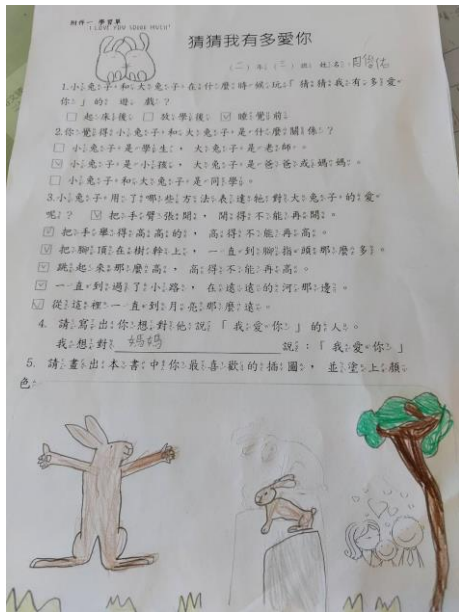 附件一 學習單
I LOVE YOU THIS MUCH
猜猜我有多愛你
(二)年(三)班 姓名:周
1.小兔子和大兔子在什麼時候玩「猜猜我有多愛
你」的遊戲?
□起床後 □放學後 ☑睡覺前
2.你覺得小兔子和大兔子是什麼關係?
□小兔子是學生,大兔子是老師。
☑小兔子是小孩,大兔子是爸爸或媽媽。
□小兔子和大兔子是同學。
3.小兔子用了哪些方法表達牠對大兔子的愛
呢? ☑把手臂張開,開得不能再開。
☑把手舉得高高的,高得不能再高。
☑把腳頂在樹幹上,一直到腳指頭那麼多。
☑跳起來那麼高,高得不能再高。
☑一直到過了小路,在遠遠的河那邊。
☑從這裡一直到月亮那麼遠。
4. 請寫出你想對他說「我愛你」的人。
我想對 媽媽 說:「我愛你」
5. 請畫出本書中你最喜歡的插圖,並塗上顏
色